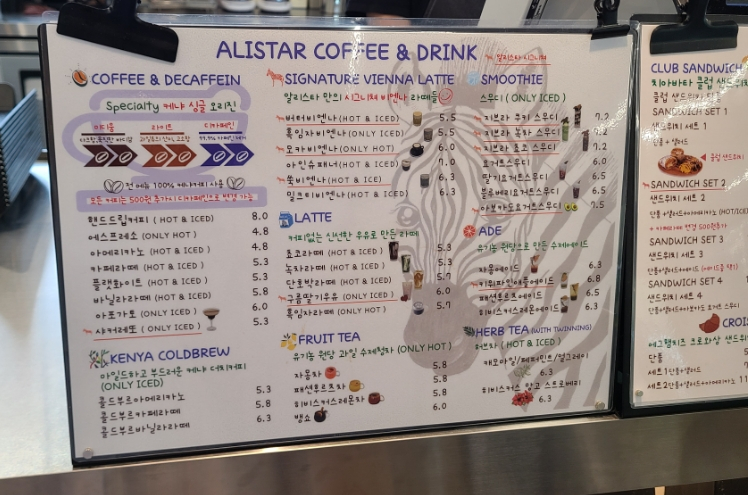 ALISTAR COFFEE & DRINK
알리스타 시그니처
COFFEE & DECAFFEIN
Specialty 케냐 싱글 오리진
미디움
라이트
디카페인
전 메뉴 100% 케냐커피 사용
모든 커피는 500원 추가시 디카페인으로 변경 가능
핸드드립커피 (HOT & ICED) 8.0
에스프레소 (ONLY HOT) 4.8
아메리카노 (HOT & ICED) 4.8
카페라떼 (HOT & ICED) 5.3
플랫화이트 (HOT & ICED) 5.3
바닐라라떼 (HOT & ICED) 5.8
아포가토 (ONLY ICED) 6.0
샤커레또 (ONLY ICED) 5.3
KENYA COLDBREW
마일드하고 부드러운 케냐 더치커피
(ONLY ICED)
콜드부르아메리카노 5.3
콜드부르카페라떼 5.8
콜드부르바닐라라떼 6.3
SIGNATURE VIENNA LATTE
알리스타 만의 시그니처 비엔나 라떼들
버터비엔나 (HOT & ICED) 5.5
흑임자비엔나 (ONLY ICED) 5.3
모카비엔나 (ONLY HOT) 6.0
아인슈패너 (HOT & ICED) 7.0
쑥비엔나 (HOT & ICED) 6.3
밀크티비엔나 (HOT & ICED) 6.3
LATTE
커피없는 신선한 우유로 만든 라떼
초코라떼 (HOT & ICED) 5.3
녹차라떼 (HOT & ICED) 5.3
단호박라떼 (HOT & ICED) 5.8
구름딸기우유 (ONLY ICED) 6.0
흑임자라떼 (ONLY HOT) 5.7
FRUIT TEA
유기농 원당 과일 수제청차 (ONLY HOT)
자몽차 5.8
패션후르츠차 5.8
히비스커스레몬차 5.8
뱅쇼 6.0
SMOOTHIE
스무디 (ONLY ICED)
지브라 쿠키 스무디 7.2
지브라 모카 스무디 7.2
지브라 초코 스무디 7.2
요거트스무디 6.0
딸기요거트스무디 6.5
블루베리요거트스무디 6.5
아보카도요거트스무디 7.5
ADE
유기농 원당으로 만든 수제에이드
자몽에이드 6.3
키위파인애플에이드 6.8
패션후르츠에이드 6.5
히비스커스레몬에이드 6.3
HERB TEA (WITH TWINNING)
허브차 (HOT & ICED)
캐모마일/페퍼민트/얼그레이
6.3
히비스커스 망고 스트로베리
6.3
CLUB SANDWICH
치아바타 클럽 샌드위치
SANDWICH SET 1
샌드위치 세트 1
단품 + 샐러드
클럽 샌드위치
SANDWICH SET 2
샌드위치 세트 2
단품+샐러드+아메리카노 (HOT/ICE
SANDWICH SET 3
샌드위치 세트 3
SANDWICH SET 4
샌드위치 세트 4
CROIS
에그햄치즈 크로와상 샌드위
단품
세트1 단품+샐러드
세트2 단품+샐러드+아메리카노 11